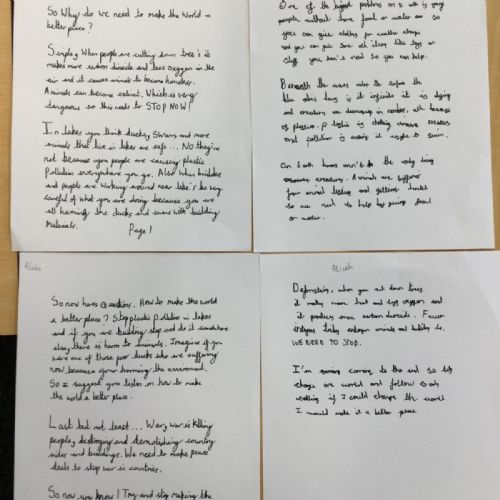 So Why do we need to make the World a
better place?
Simply, When people are cutting down tree's it
makes more carbon dioxide and less oxygen in the
air and it causes animals to become homeless.
Animals can become extinct. Which is very
dangerous so this needs to STOP NOW!
In lakes you think ducks, Swans and more
animals that live in lakes are safe... NO they're
not because you people are causing plastic
Pollution everywhere you go. Also When builders
and people are working around near lake's be very
careful of what you are doing because you are
all harming the ducks and swans with building
Materials.
Page 1
One of the biggest problems on is
people without home food or water so
you can give clothes for weather change
and you can give some old items like toys or
stuff you don't need so you can help.
Beneath the waves
like skies
and creatures are decreasing in number, all because
of plastic. Plastic is choking creatures
and pollution is making it to swim.
On Earth humans aren't the only living
creatures. Animals are suffering
from animal testing and getting
so we need to help by giving food
or water.
Alicia
So now here's Question. How to make the world
a better place? Stop plastic Pollution in lakes
and if you are building stop and do it somewhere
else, there is harm to animals. Imagine if you
were one of those poor ducks who are suffering
now because your harming the enviroment.
So I suggest you listen on how to make
the world a better place.
Last but not least... War, war is killing
people, destroying and demolishing country
sides and buildings. We need to make peace
deals to stop war in countries.
So now you know! Try and stop making the
Deforestation, when you cut down trees
it makes more heat and less oxygen and
it produces more carbon dioxide. Fewer
animals and
WE NEED TO STOP.
I'm coming to the end so lets
change our world and follow
if I could change the world
I would make it a better place